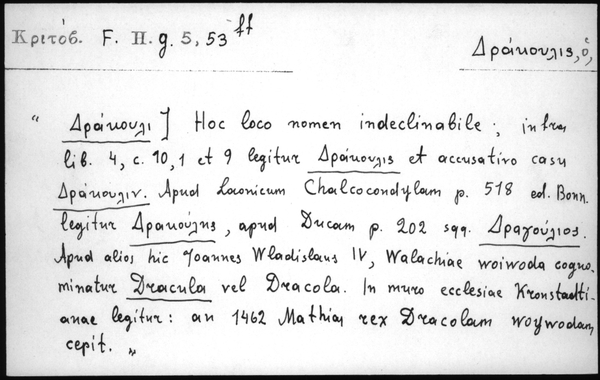 Κριτόβ. F. H. g. 5, 53 ff
Δράκουλις, ὁ,
“ Δράκουλι] Hoc loco nomen indeclinabile ; infra
lib. 4, c. 10, 1 et 9 legitur Δράκουλις et accusativo casu
Δράκουλιν. Apud Laonicum Chalcocondylam p. 518 ed. Bonn.
legitur Δρακούλης, apud Ducam p. 202 sqq. Δραγούλιος.
Apud alios hic Joannes Wladislaus IV, Walachiae woiwoda cogno-
minatur Dracula vel Dracola. In muro ecclesiae Kronstadti-
anae legitur : an 1462 Mathias rex Dracolam woywodam
cepit. „